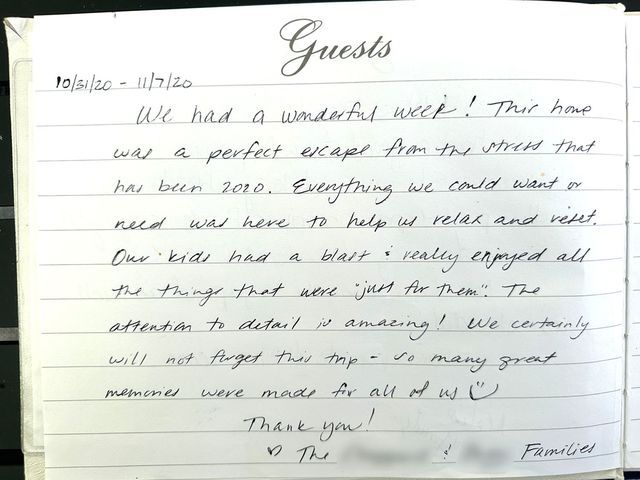 Guests
10/31/20 - 11/7/20
We had a wonderful week! This home
was a perfect escape from the stress that
has been 2020. Everything we could want or
need was here to help us relax and reset.
Our kids had a blast & really enjoyed all
the things that were "just for them". The
attention to detail is amazing! We certainly
will not forget this trip - so many great
memories were made for all of us
Thank you!
♡ The & Families